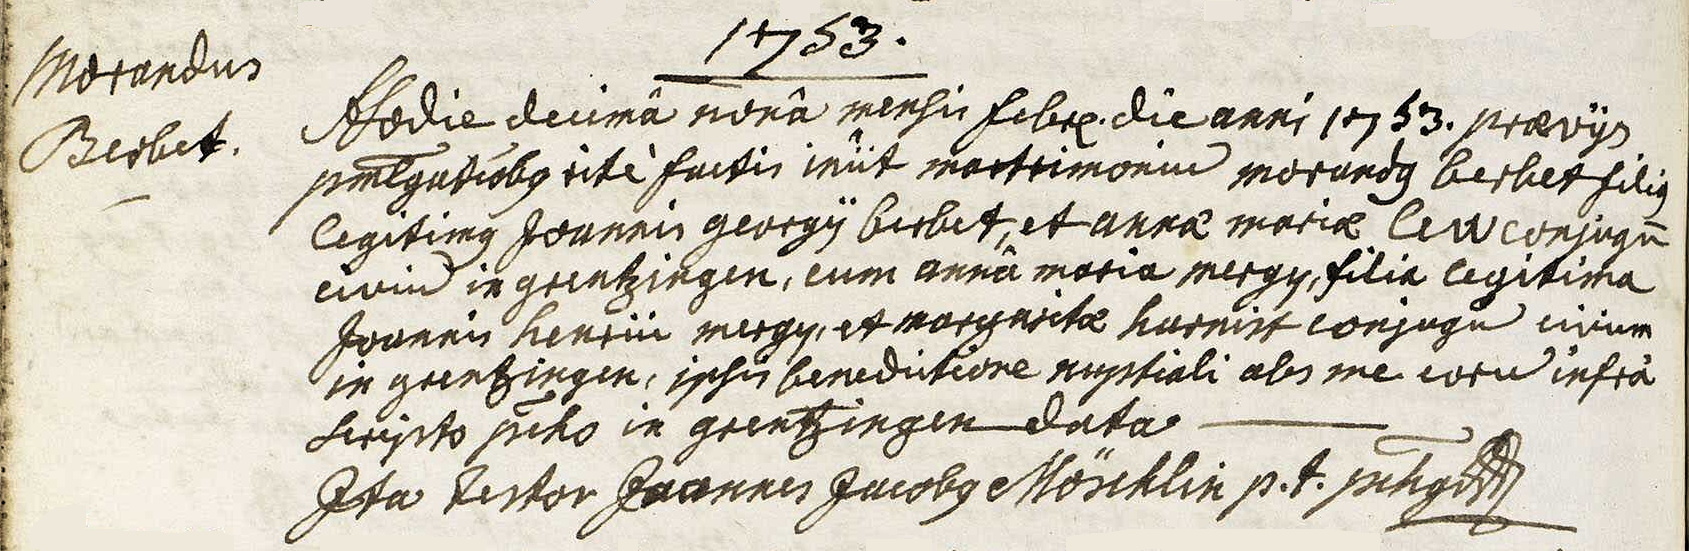 1753.
Morandus
Berbet.
Hodie decimâ nonâ mensis febr. die anni 1753. prævijs
pmlgatiobq ritè factis inijt matrimoniu morandq berbet filiq
legitimq Joannis georgij berbet, et annæ mariæ lew conjugū
civiu in grentzingen, cum annâ maria mergy, filia legitima
Joannis henrici mergy, et margaritæ hurnist conjugu civium
in grentzingen, ipsis benedictione nuptiali abs me coru infrà
scripto pcho in grentzingen data
Ita testor Joannes Jacobq Möschlin p.t. pchq